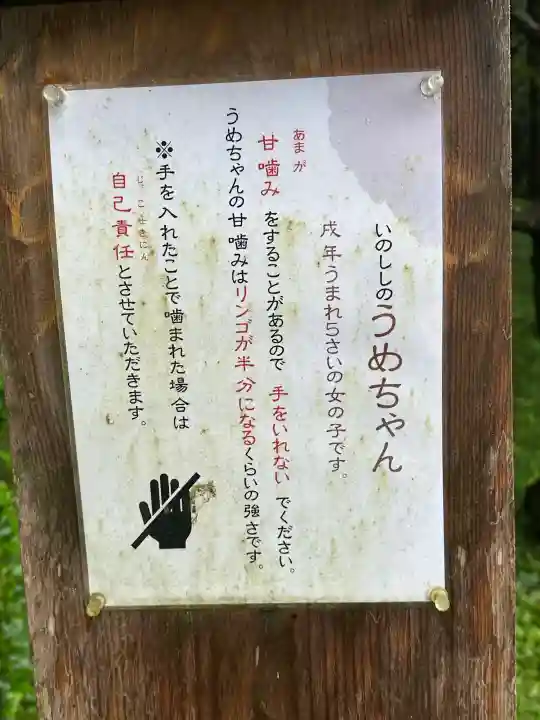 いのししのうめちゃん
戌年うまれ5さいの女の子です。
あまが
甘噛みをすることがあるので手をいれないでください。
うめちゃんの甘噛みはリンゴが半分になるくらいの強さです。
※手を入れたことで噛まれた場合は
じこせきにん
自己責任とさせていただきます。